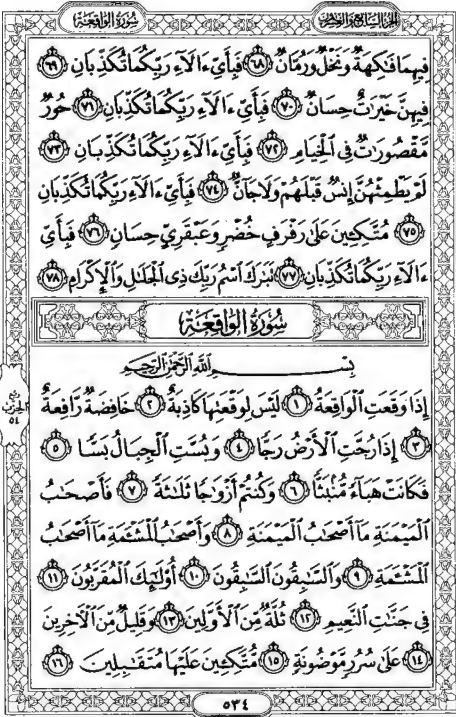 سُورَةُ الوَاقِعَةِ الجزء السابع والعشرون
فِيهِمَا فَٰكِهَةٌ وَنَخْلٌ وَرُمَّانٌ ٦٨ فَبِأَيِّ ءَالَآءِ رَبِّكُمَا تُكَذِّبَانِ ٦٩
فِيهِنَّ خَيْرَٰتٌ حِسَانٌ ٧٠ فَبِأَيِّ ءَالَآءِ رَبِّكُمَا تُكَذِّبَانِ ٧١ حُورٌ
مَّقْصُورَٰتٌ فِي ٱلْخِيَامِ ٧٢ فَبِأَيِّ ءَالَآءِ رَبِّكُمَا تُكَذِّبَانِ ٧٣
لَمْ يَطْمِثْهُنَّ إِنسٌ قَبْلَهُمْ وَلَا جَآنٌّ ٧٤ فَبِأَيِّ ءَالَآءِ رَبِّكُمَا تُكَذِّبَانِ
٧٥ مُتَّكِـِٔينَ عَلَىٰ رَفْرَفٍ خُضْرٍ وَعَبْقَرِيٍّ حِسَانٍ ٧٦ فَبِأَيِّ
ءَالَآءِ رَبِّكُمَا تُكَذِّبَانِ ٧٧ تَبَٰرَكَ ٱسْمُ رَبِّكَ ذِي ٱلْجَلَٰلِ وَٱلْإِكْرَامِ ٧٨
سُورَةُ الوَاقِعَةِ
بِسْمِ ٱللَّهِ ٱلرَّحْمَٰنِ ٱلرَّحِيمِ
إِذَا وَقَعَتِ ٱلْوَاقِعَةُ ١ لَيْسَ لِوَقْعَتِهَا كَاذِبَةٌ ٢ خَافِضَةٌ رَّافِعَةٌ
٣ إِذَا رُجَّتِ ٱلْأَرْضُ رَجًّا ٤ وَبُسَّتِ ٱلْجِبَالُ بَسًّا ٥
فَكَانَتْ هَبَآءً مُّنۢبَثًّا ٦ وَكُنتُمْ أَزْوَٰجًا ثَلَٰثَةً ٧ فَأَصْحَٰبُ
ٱلْمَيْمَنَةِ مَآ أَصْحَٰبُ ٱلْمَيْمَنَةِ ٨ وَأَصْحَٰبُ ٱلْمَشْـَٔمَةِ مَآ أَصْحَٰبُ
ٱلْمَشْـَٔمَةِ ٩ وَٱلسَّٰبِقُونَ ٱلسَّٰبِقُونَ ١٠ أُو۟لَٰٓئِكَ ٱلْمُقَرَّبُونَ ١١
فِي جَنَّٰتِ ٱلنَّعِيمِ ١٢ ثُلَّةٌ مِّنَ ٱلْأَوَّلِينَ ١٣ وَقَلِيلٌ مِّنَ ٱلْءَاخِرِينَ
١٤ عَلَىٰ سُرُرٍ مَّوْضُونَةٍ ١٥ مُّتَّكِـِٔينَ عَلَيْهَا مُتَقَٰبِلِينَ ١٦
ربع
الحزب
٥٤
٥٣٤